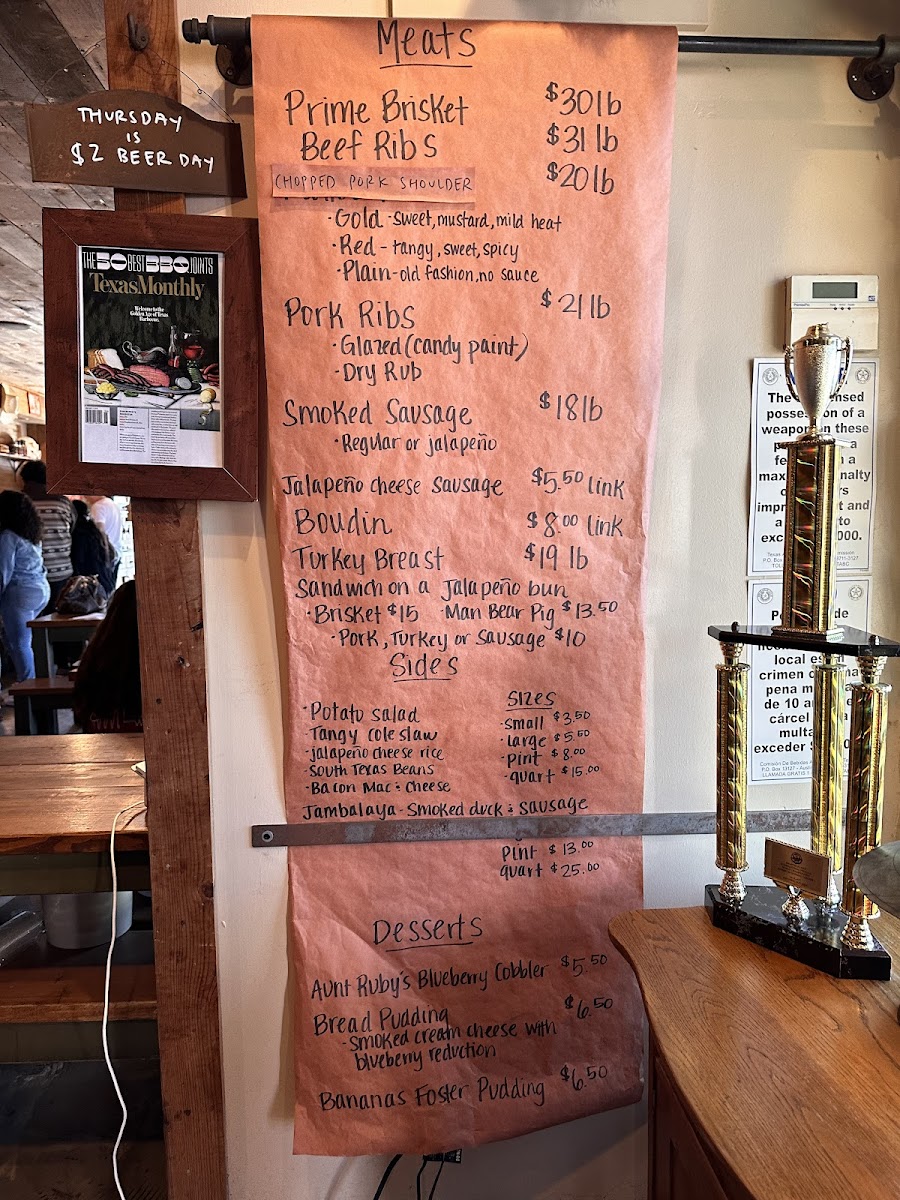 Meats
Prime Brisket $30 lb
Beef Ribs $31 lb
CHOPPED PORK SHOULDER $20 lb
· Gold - sweet, mustard, mild heat
· Red - tangy, sweet, spicy
· Plain - old fashion, no sauce
Pork Ribs $21 lb
· Glazed (candy paint)
- Dry Rub
Smoked Sausage $18 lb
· Regular or jalapeño
Jalapeño cheese Sausage $5.50 link
Boudin $8.00 link
Turkey Breast $19 lb
Sandwich on a Jalapeño bun
· Brisket $15 · Man Bear Pig $13.50
· Pork, Turkey or Sausage $10
Sides
· Potato salad
· Tangy coleslaw
· jalapeño cheese rice
· South Texas Beans
· Bacon Mac & Cheese
Sizes
· small $3.50
· large $5.50
· Pint $8.00
· quart $15.00
Jambalaya - Smoked duck & Sausage
Pint $13.00
quart $25.00
Desserts
Aunt Ruby's Blueberry Cobbler $5.50
Bread Pudding $6.50
- Smoked cream cheese with
blueberry reduction
Bananas Foster Pudding $6.50
THURSDAY
IS
$2 BEER DAY
THE 50 BEST BBQ JOINTS
TexasMonthly
Welcome to the
Golden Age of Texas
Barbecue.
The
possession of a
weapon these
a
a
max
and
a to
exc 000.
de
local es
crimen
pena m
de 10 a
cárcel
multa
exceder $
LLAMADA GRATIS